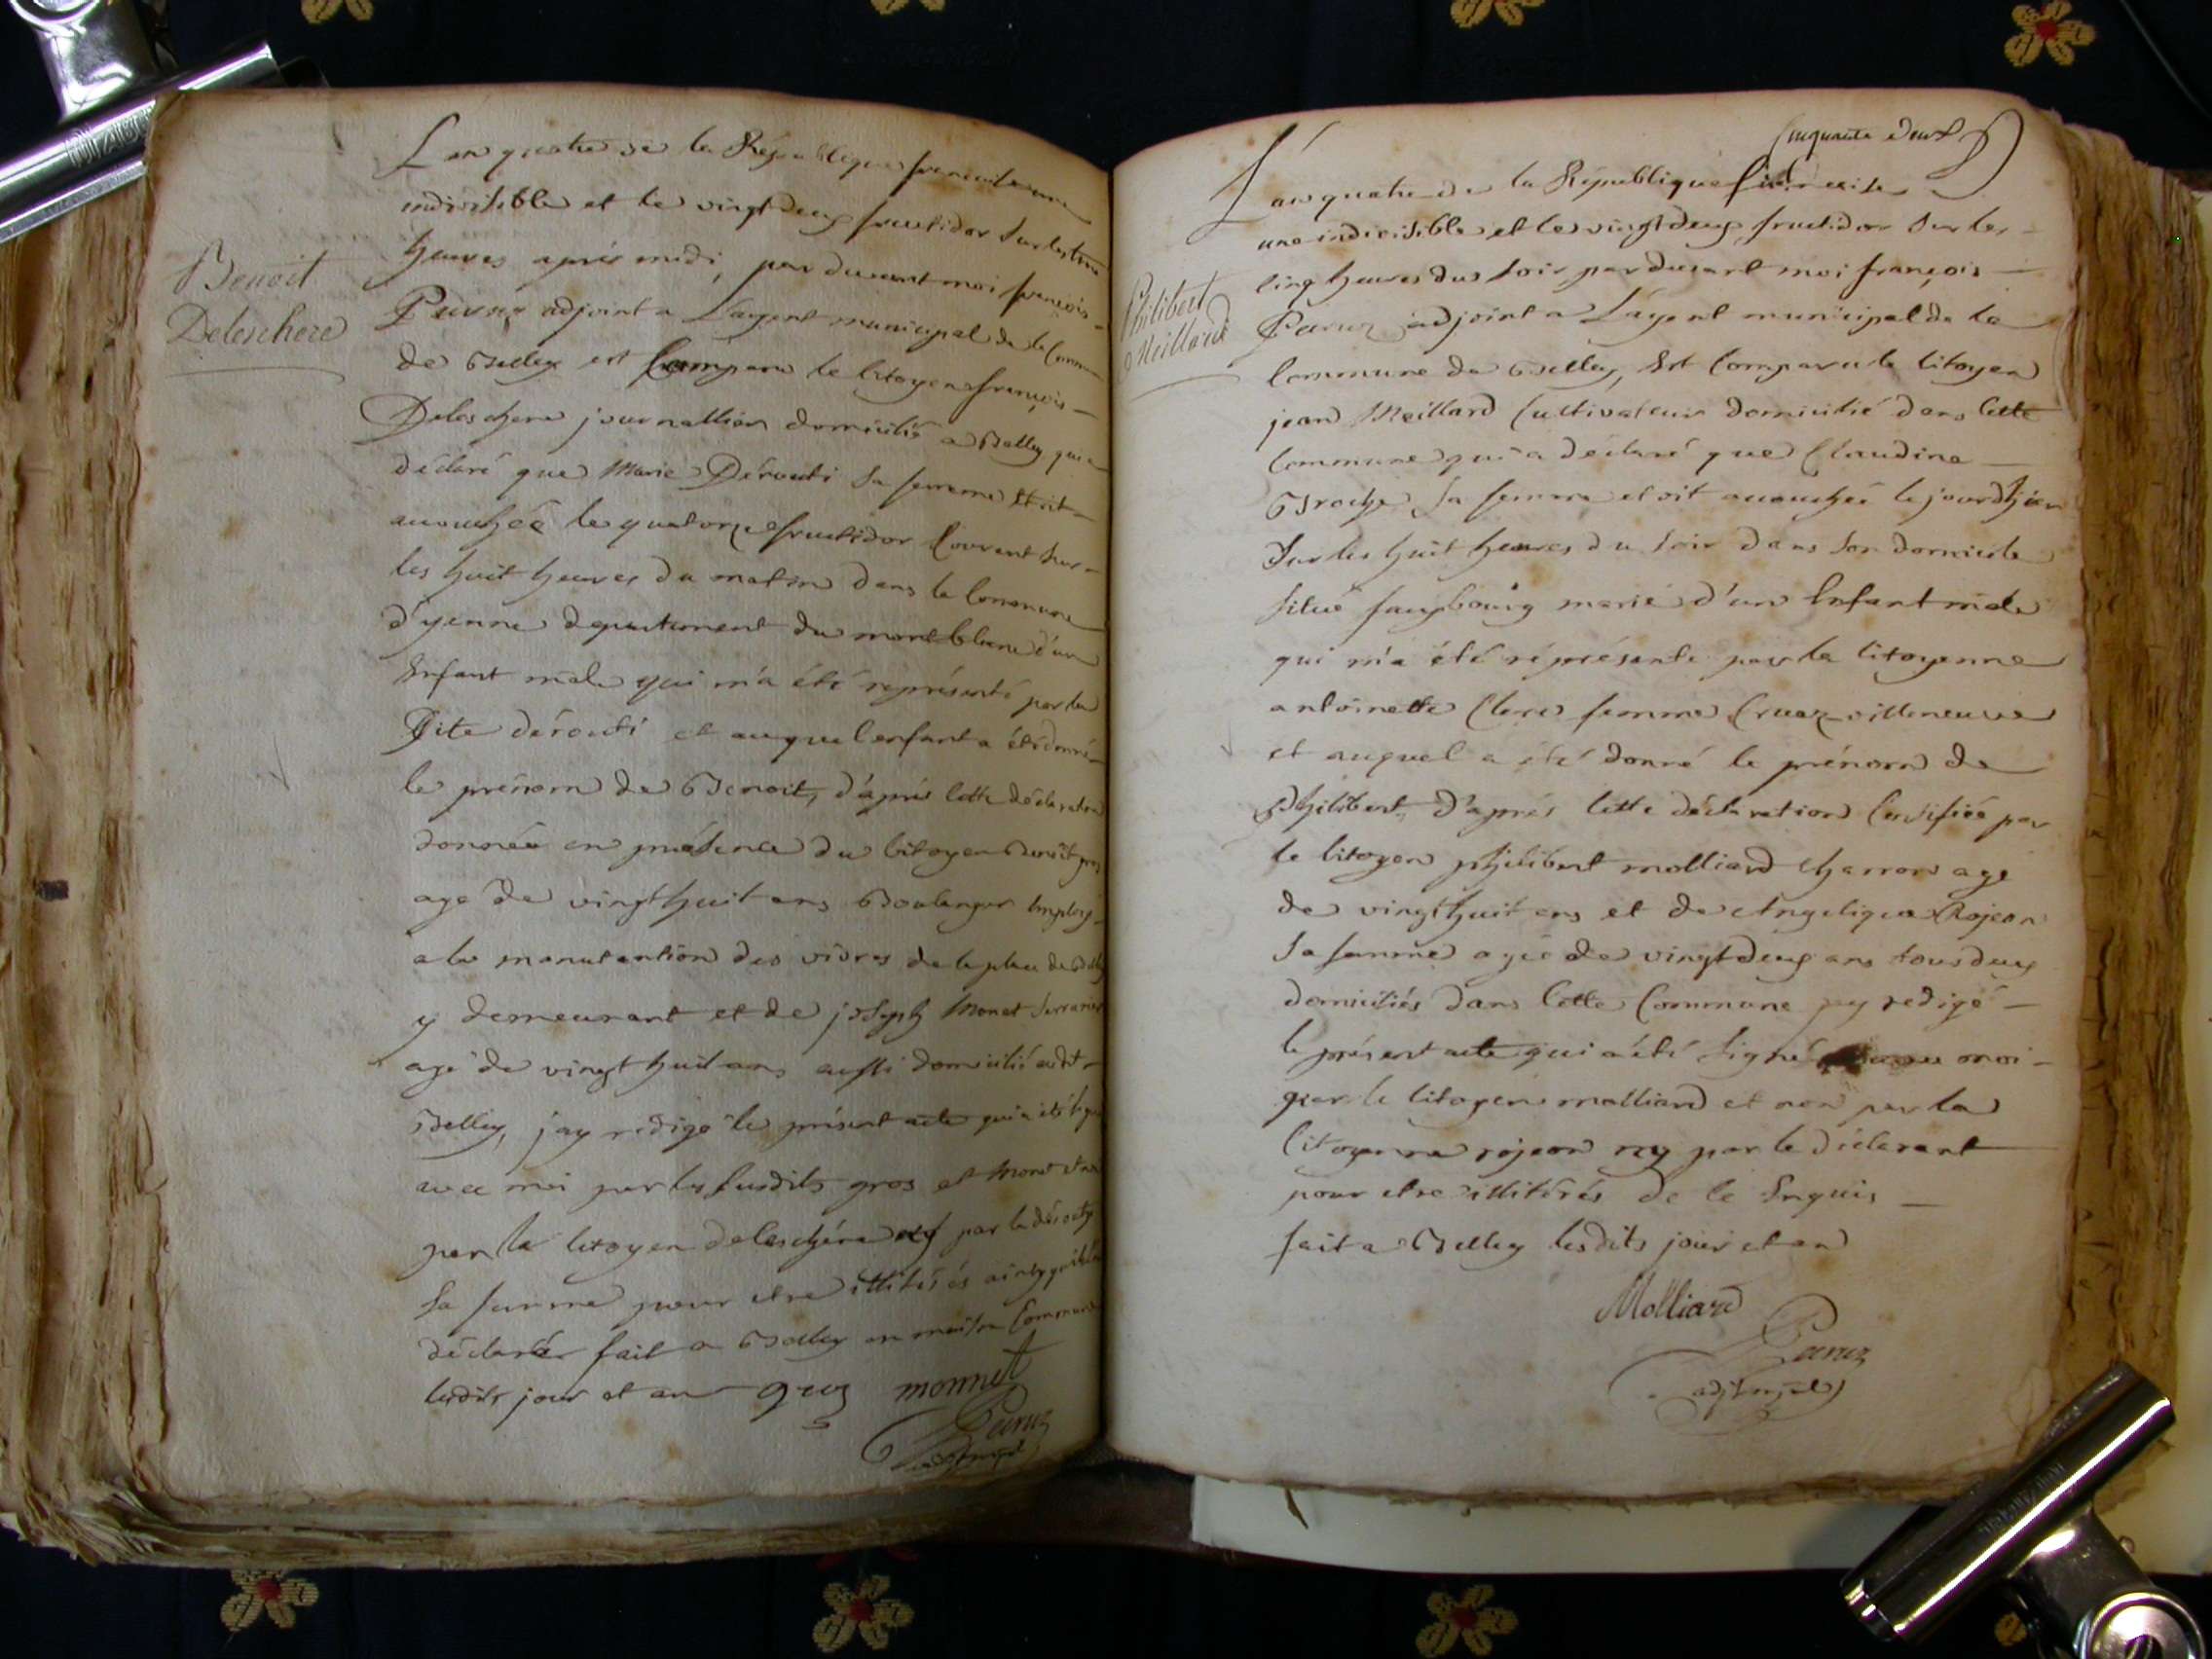 Benoit
Deleschere
L'an quatre de la République francaise une
indivisible et le vingt deux fructidor sur les trois
heures après midi, par devant moi françois
Peruz adjoint a L'agent municipal de la Commune
de Belley est Comparu le Citoyen françois
Deleschere journallier domicilié a Belley qui a
déclaré que Marie Dérouti sa femme etoit
accouchée le quatorze fructidor Courent sur
les huit heures du matin dans la Commune
d'yenne departement du montblanc d'un
Enfant male qui m'a été représenté par la
Dite dérouti et auquel enfant a été donné
le prénom de Benoit, d'après Cette déclaration
donnée en présence du Citoyen Benoit gros
agé de vingt huit ans Boulanger Employé
a la manutention des vivres de la place de Belley
y demeurant et de joseph Monet Serrurier
agé de vingt huit ans aussi domicilié audit
Belley, j'ay redigé le présent acte qui a été signé
avec moi par les susdits gros et Monet et non
par le Citoyen deleschere ny par la dérouty
sa femme pour etre illitérés ainsy qu'ils l'ont
déclarés fait a Belley en maison Commune
lesdits jour et an gros monnet
Peruz
Cinquante deux
L'an quatre de la République francaise
une indivisible et le vingt deux fructidor sur les
Cinq heures du soir par devant moi françois
Philibert
Meillard
Peruz adjoint a L'agent municipal de la
Commune de Belley, Est Comparu le Citoyen
jean Meillard Cultivateur domicilié dans Cette
Commune qui a déclaré que Claudine
Broche sa femme etoit accouchée le jour d'hier
sur les huit heures du soir dans son domicile
situé fauxbourg marie d'un Enfant male
qui m'a été réprésenté par la Citoyenne
antoinette Clerc femme Cruaz villeneuve
et auquel a été donné le prénom de
Philibert, D'après Cette déclaration Certifiée par
le Citoyen philibert molliard charron agé
de vingt huit ans et de Angelique Rojeon
sa femme agée de vingt deux ans tous deux
domiciliés dans Cette Commune j'ay redigé
le présent acte qui a été signé avec moi
par le Citoyen molliard et non par la
Citoyenne rojeon ny par le déclarant
pour etre illitérés de ce Enquis
fait a Belley lesdits jour et an
Molliard
Peruz
adjt mpal